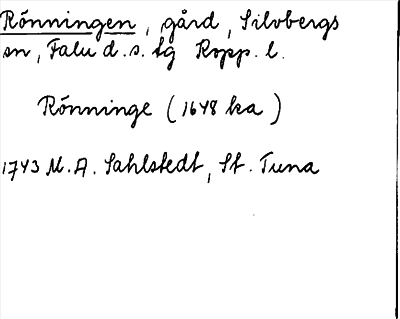 Rönningen, gård, Silvbergs
sn, Falu d.s. tg Kopp. l.
Rönninge (1648 ka)
1743 M. A. Sahlstedt, St. Tuna